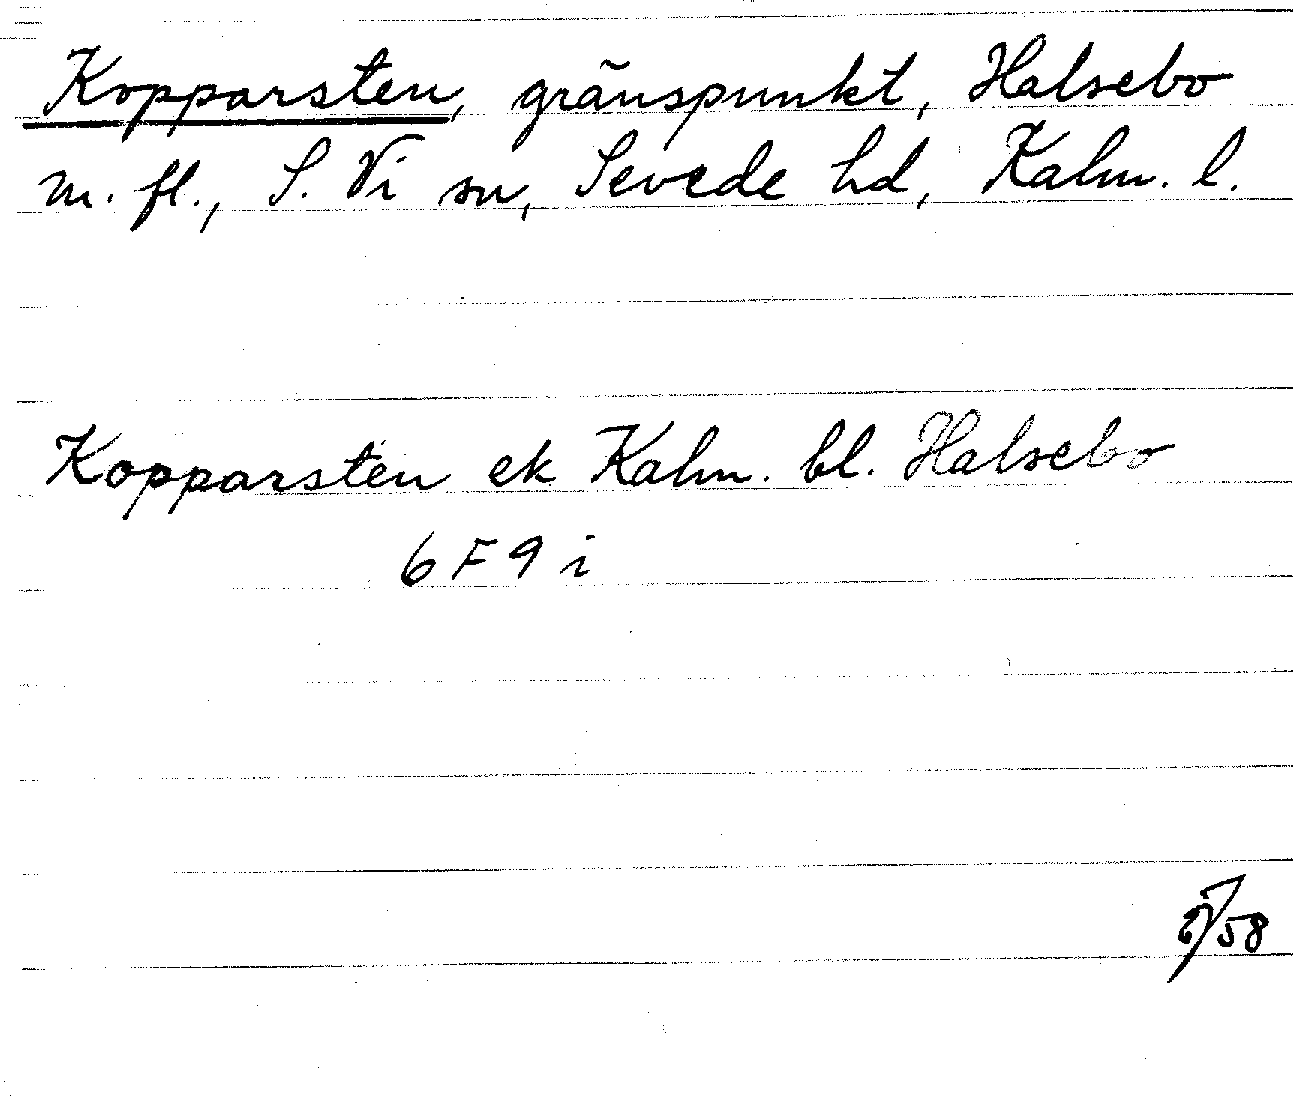 Kopparsten, gränspunkt, Halsebo
m. fl., S. Vi sn, Sevede hd, Kalm. l.
Kopparsten ek Kalm. bl. Halsebo
6 F 9 i
58